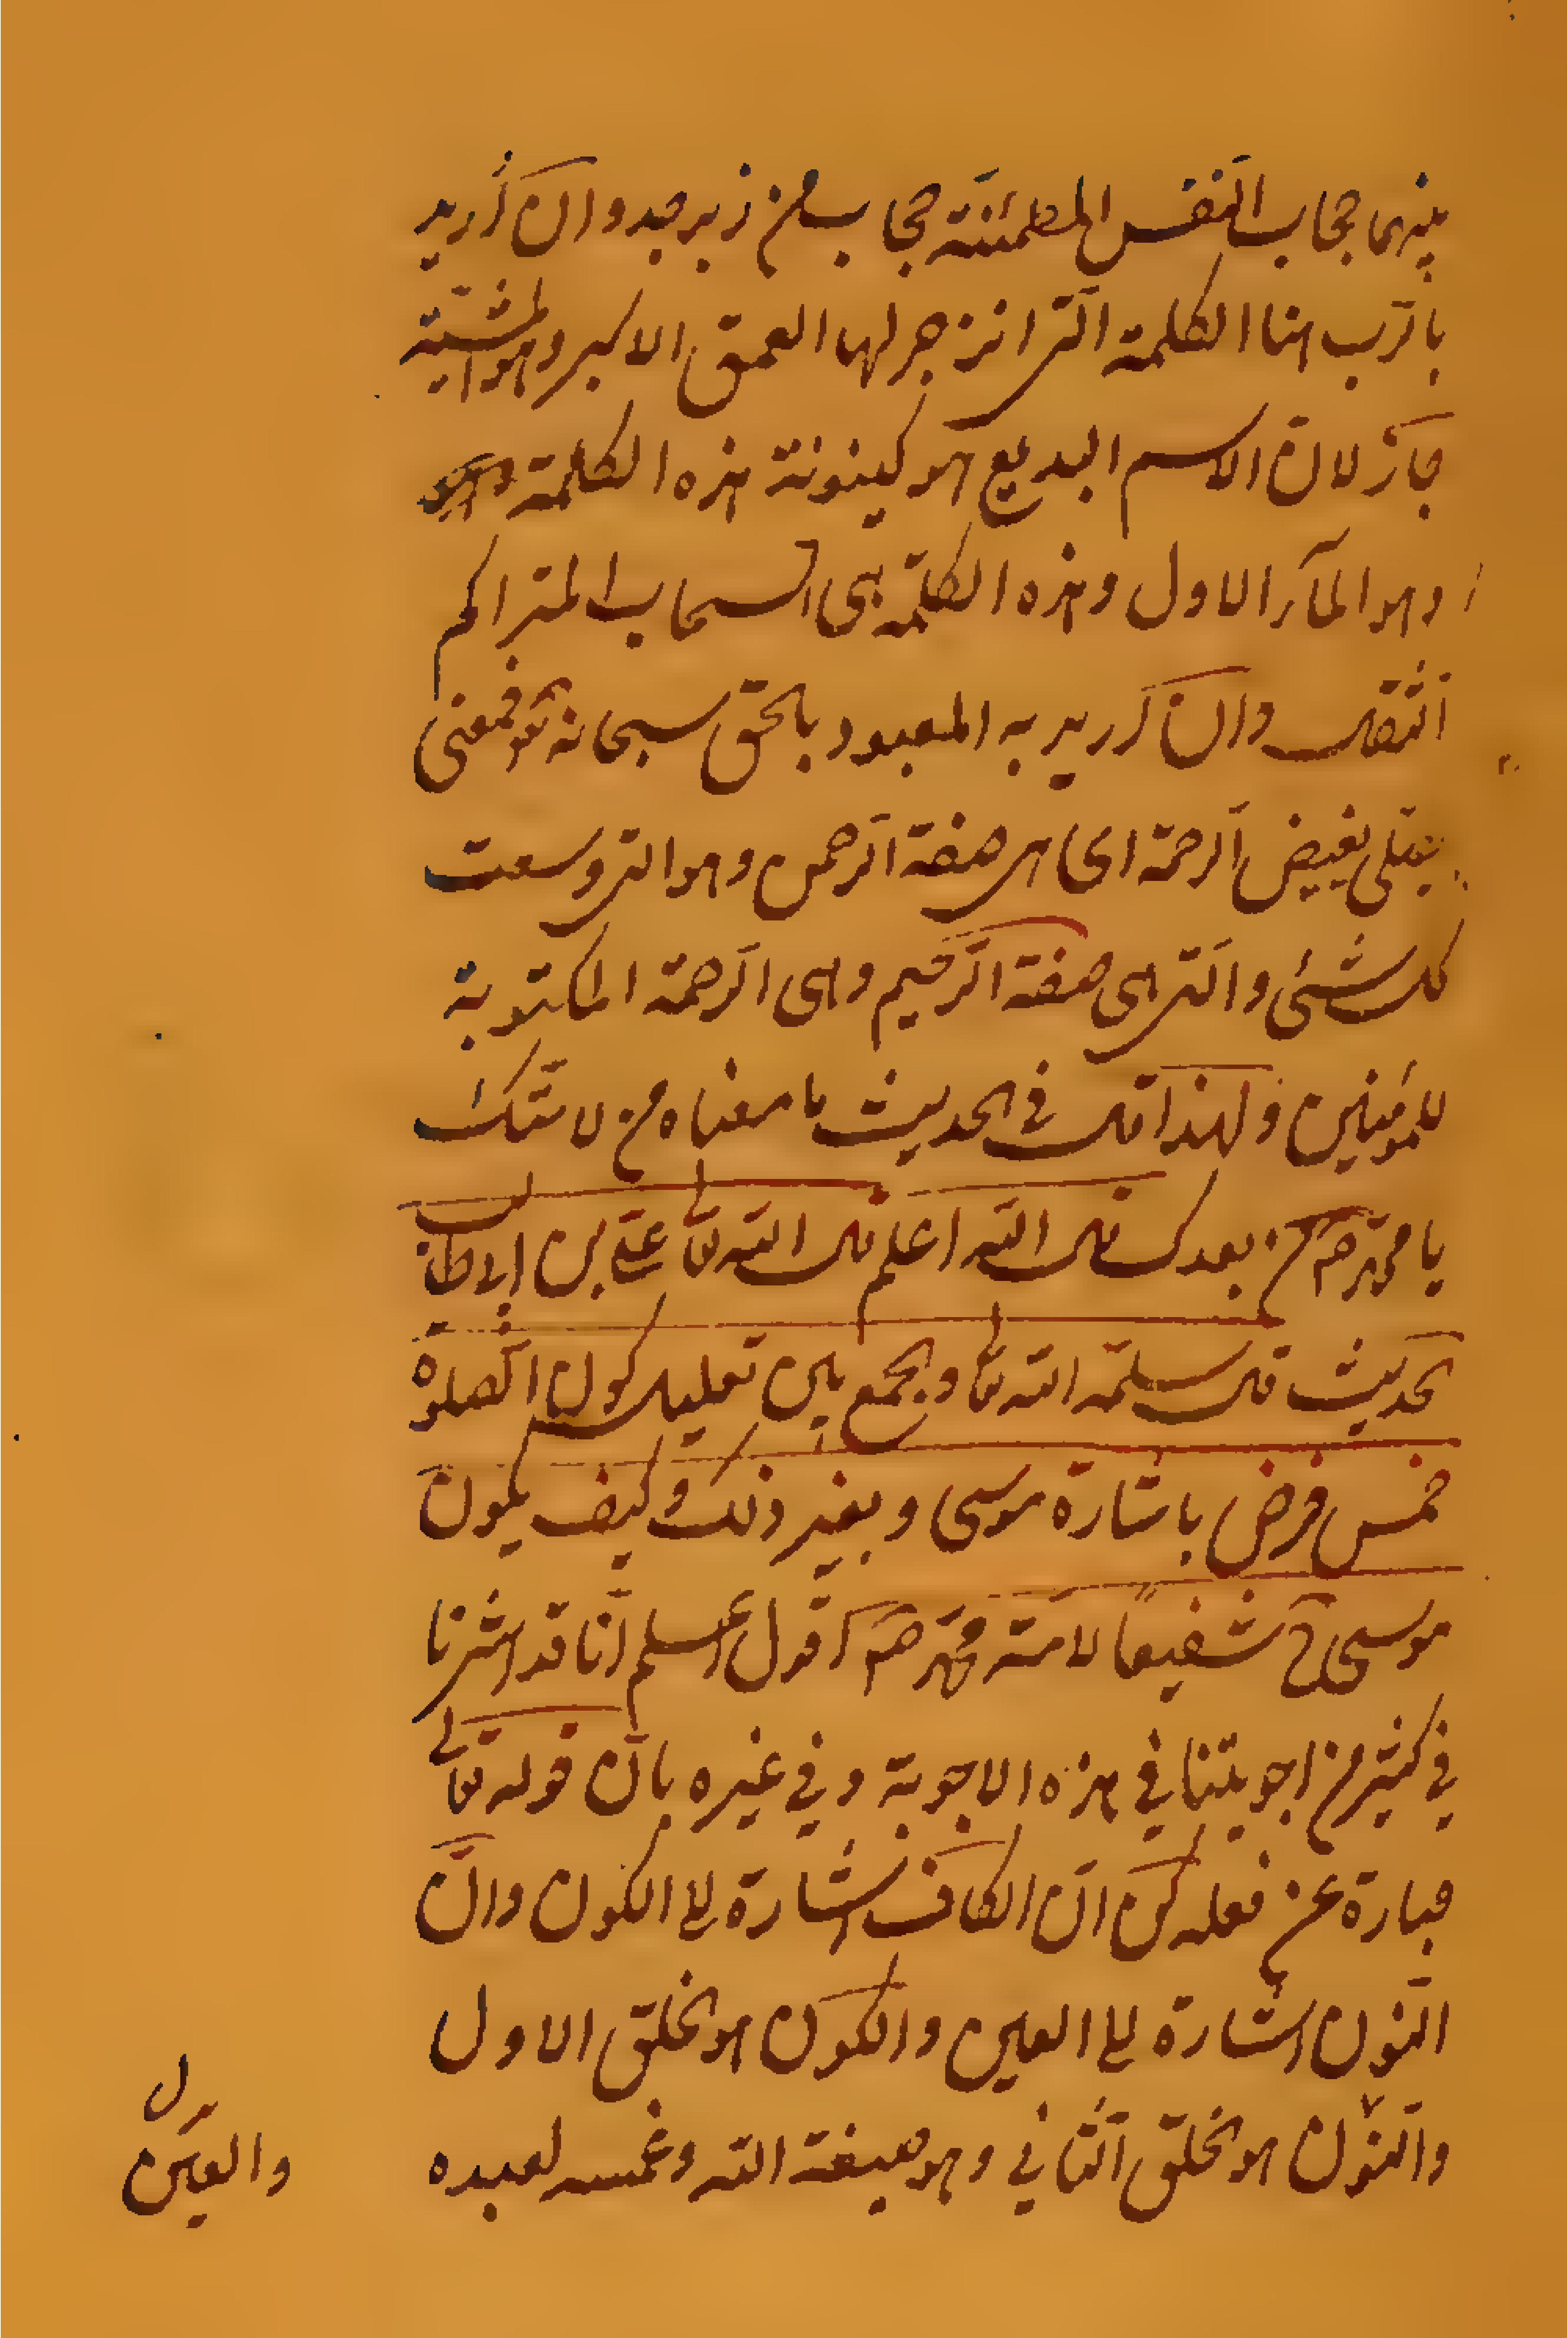 بينهما حجاب النفس المطمئنة حجاب من زبرجد وان اُريد
بالرّب هنا الكلمة الّتى انزجر لها العمق الاكبر وهو المشيّة
جازَ لان الاسم البديع هو كينونة هذه الكلمة
وهو المآء الاول وهذه الكلمة هى السحاب المتراكم
الثقال وان اُريد به المعبود بالحق سبحانه تعو فمعنى
يصلى يفيض الرحمة اى هى صفة الرّحمن وهو التى وسعت
كل شئ والّتى هى صفة الرّحيم وهى الرّحمة المكتوبة
للمؤمنين ولهذا قال فى الحديث ما معناه من لامتك
يا محمّد صم من بعدك قال الله اعلم قال الله تعالى علىّ بن ابى طالب
الحديث قال سلمه الله تعا والجمع بين تعليل كون الصلوة
خمس فرض باشارة موسى وبغير ذلك وكيف يكون
موسى ع شفيعًا لامة محمّد صم اقول اعلم انّا قد اشرنا
فى كثير من اجوبتنا فى هذه الاجوبة وفى غيره بان قوله تعالى
عبارة عن فعله كن انّ الكاف اشارة الى الكون وانّ
النّون اشارة الى العين والكون هو الخلق الاول
والنّون هو الخلق الثانى وهو صبغة الله وغمسه لعبده
والعين
بدل